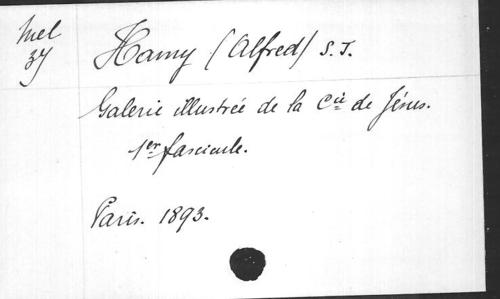 Mel
37
Hamy (Alfred) S. J.
Galerie illustrée de la Cie de Jésus.
1er fascicule.
Paris. 1893.